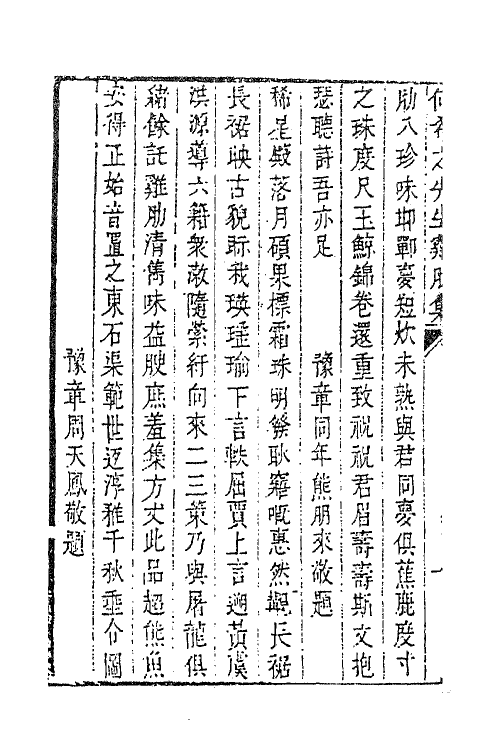 何希之先生雞肋集
肋八珍味抑鄲夢短炊未熟與君同夢俱蕉鹿度寸
之珠度尺玉鯨錦卷還重致祝祝君眉壽壽斯文抱
瑟聽詩吾亦足　豫章同年熊朋來敬題
稀星落月碩果標霜珠明發耿寤嘅惠然觀長裾
長裾映古貌眎我瑛瑾瑜下言軼屈賈上言遡黃虞
洪源導六籍衆隨縈紆向來二三策乃與屠龍俱
緒餘託雞肋清雋味益腴庶羞集方丈此品超熊魚
安得正始音置之東石渠範世迓淳雅千秋垂令圖
豫章周天鳳敬題